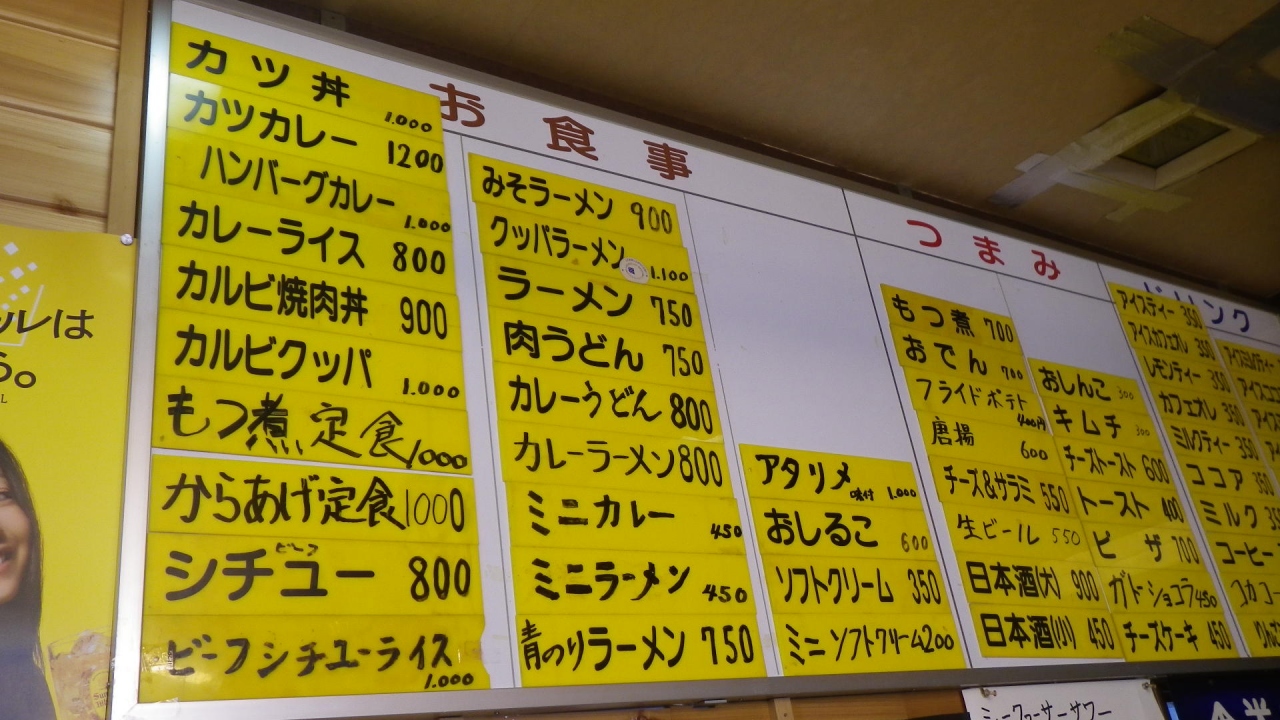 お食事
カツ丼 1.000
カツカレー 1200
ハンバーグカレー 1.000
カレーライス 800
カルビ焼肉丼 900
カルビクッパ 1.000
もつ煮定食 1000
からあげ定食 1000
ビーフ
シチュー 800
ビーフシチューライス 1.000
みそラーメン 900
クッパラーメン 1.100
ラーメン 750
肉うどん 750
カレーうどん 800
カレーラーメン 800
ミニカレー 450
ミニラーメン 450
青のりラーメン 750
アタリメ 味付 1.000
おしるこ 600
ソフトクリーム 350
ミニソフトクリーム 200
つまみ
もつ煮 700
おでん 700
フライドポテト 400円
唐揚 600
チーズ&サラミ 550
生ビール 550
日本酒(大) 900
日本酒(小) 450
おしんこ 300
キムチ 300
チーズトースト 600
トースト 400
ピザ 700
ガトーショコラ 450
チーズケーキ 450
ドリンク
アイスティー 350
アイスカフェオレ 390
レモンティー 350
カフェオレ 350
ミルクティー 350
ココア 350
ミルク 35
コーヒー
アイスミルクティー
アイスココ
アイス
ルは
。